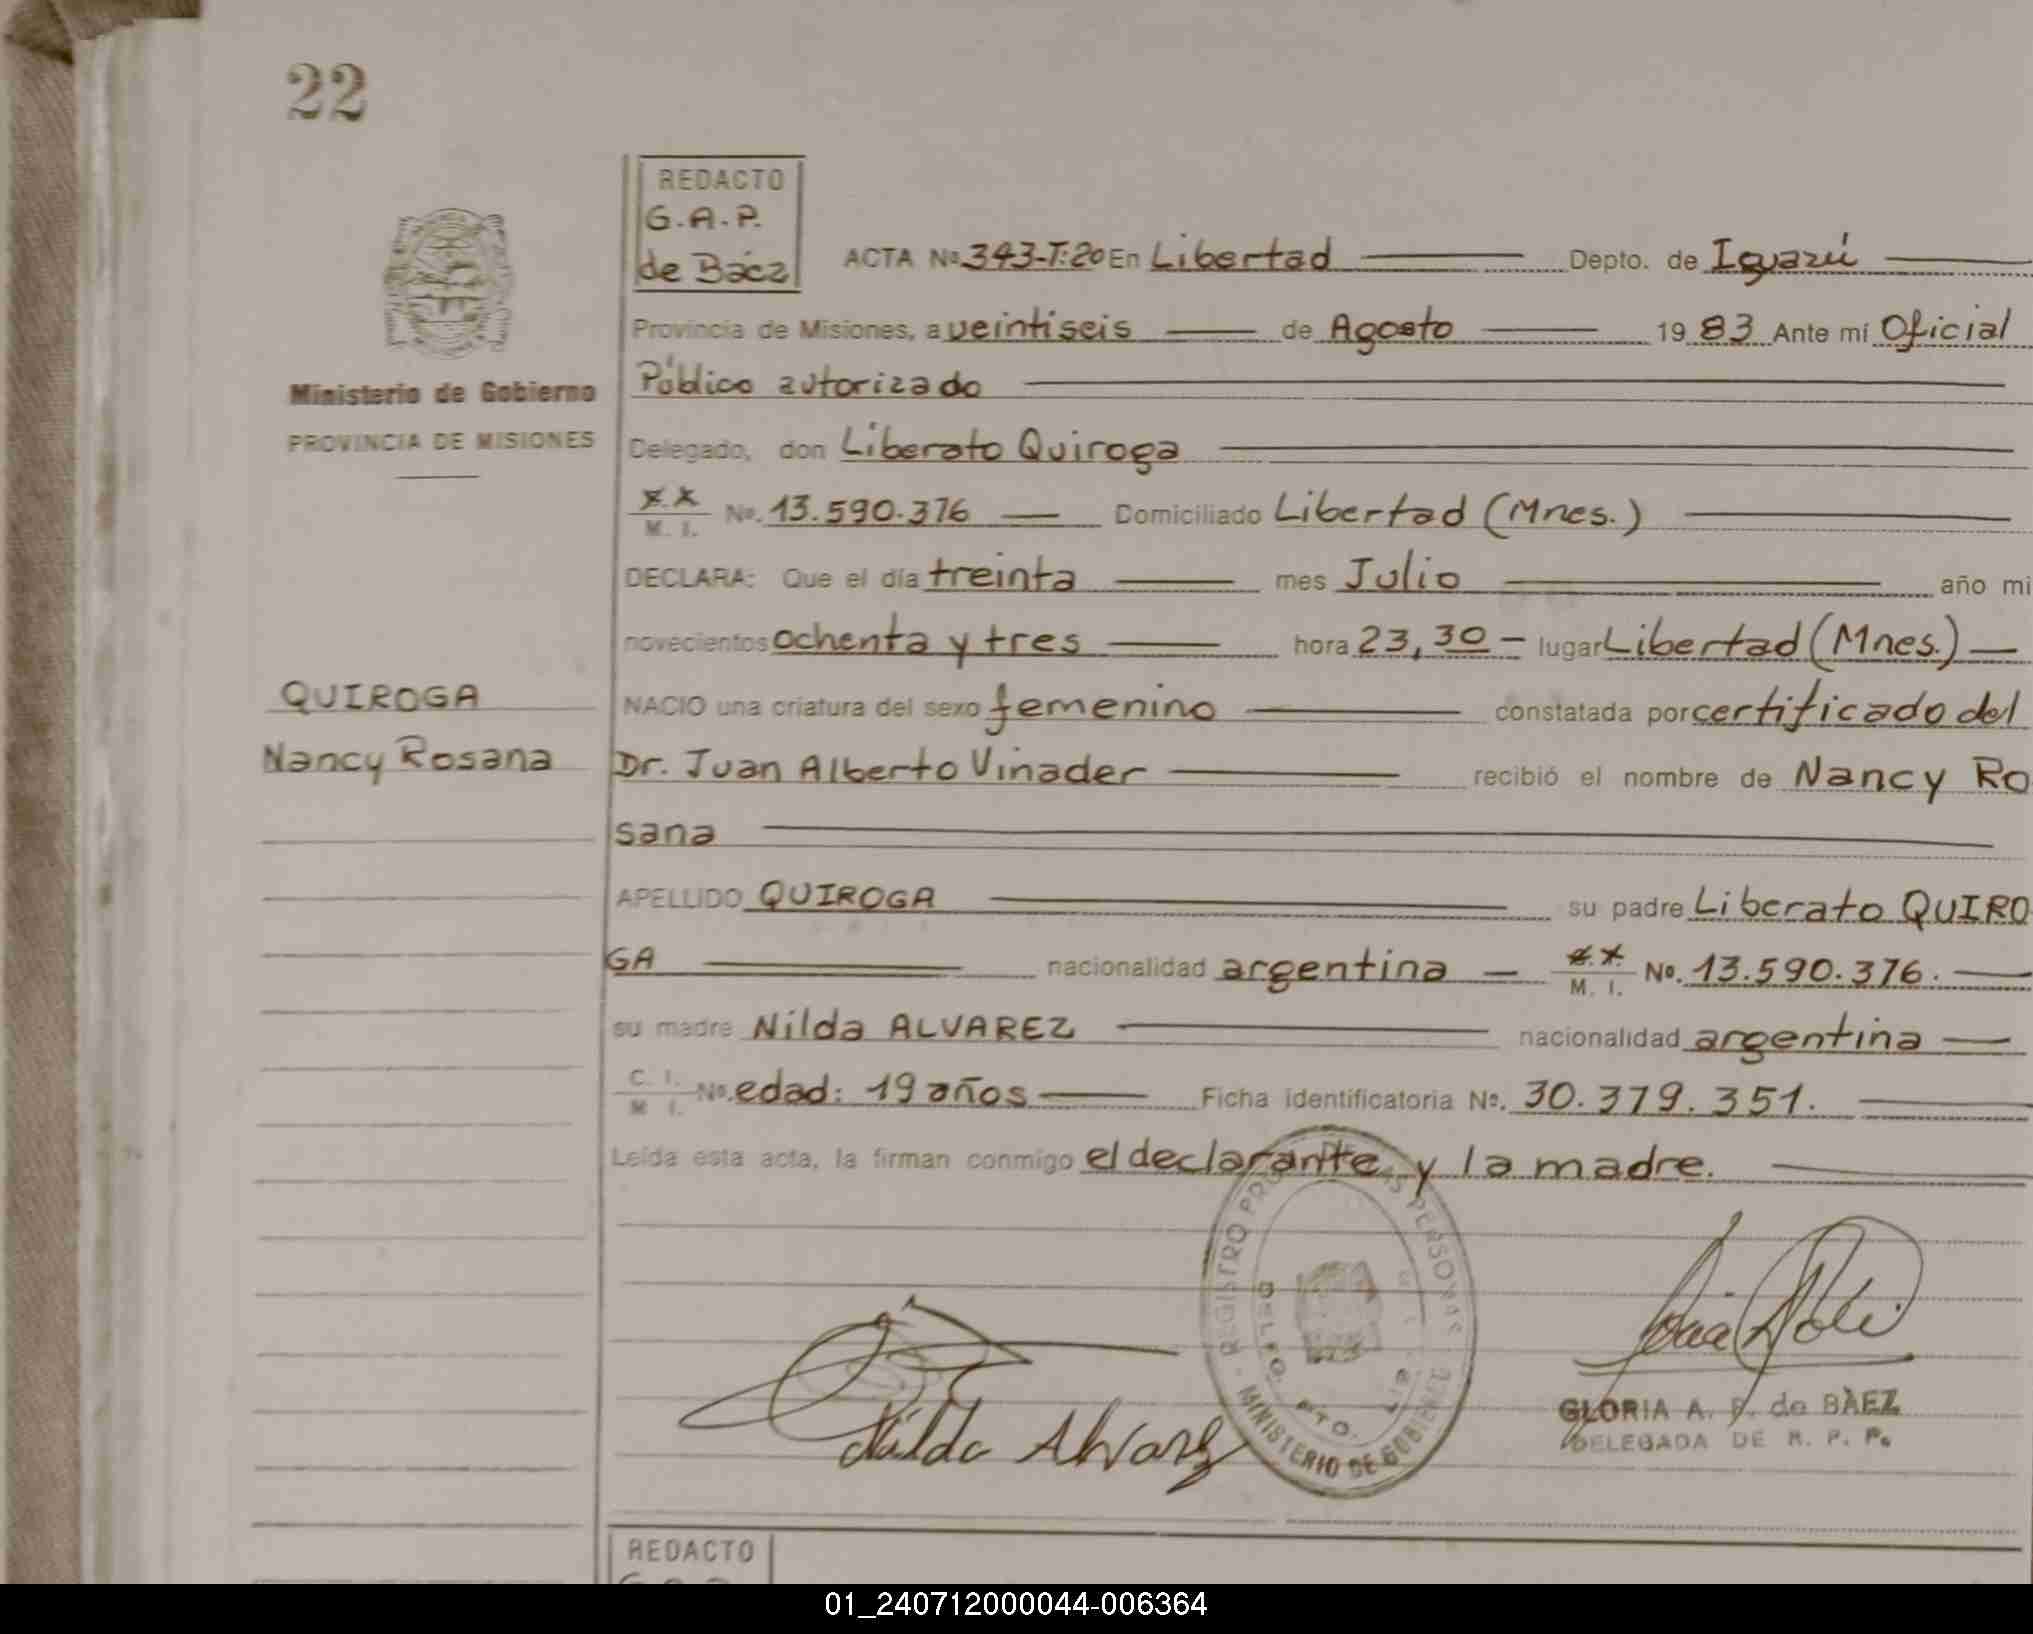 22
REDACTO
G.A.P.
de Báez
Ministerio de Gobierno
PROVINCIA DE MISIONES
ACTA Nº 343-T:20 En Libertad Depto. de Iguazú
Provincia de Misiones, a veintiseis de Agosto 1983 Ante mí Oficial
Público autorizado
Delegado, don Liberato Quiroga
M. I. Nº. 13.590.376 Domiciliado Libertad (Mnes.)
DECLARA: Que el día treinta mes Julio año mi
novecientos ochenta y tres hora 23,30 lugar Libertad (Mnes.)
QUIROGA
Nancy Rosana
NACIO una criatura del sexo femenino constatada por certificado del
Dr. Juan Alberto Vinader recibió el nombre de Nancy Ro
sana
APELLIDO QUIROGA su padre Liberato QUIRO
GA nacionalidad argentina M. I. Nº. 13.590.376.
su madre Nilda ALVAREZ nacionalidad argentina
C. I. M. I. Nº. edad: 19 años Ficha identificatoria Nº. 30.379.351.
Leída esta acta, la firman conmigo el declarante y la madre.
REGISTRO PERSONAS
MINISTERIO DE GOBIERNO
Nilda Alvarez
GLORIA A. P. de BAEZ
DELEGADA DE R. P. P.
REDACTO
01_240712000044-006364